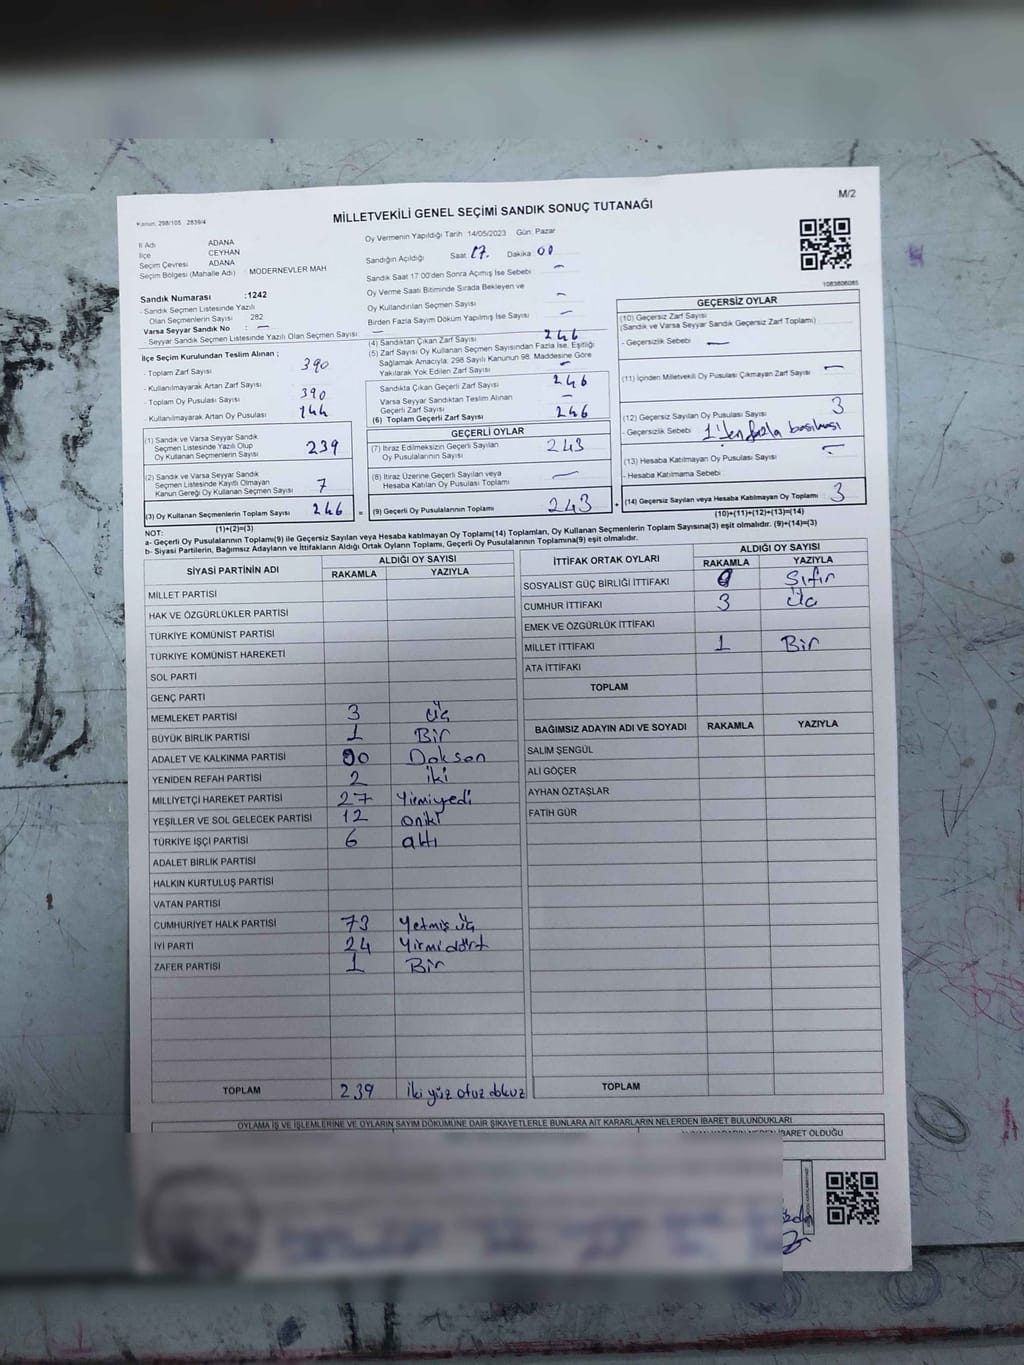 Kanun: 298/105 2839/4
M/2
MİLLETVEKİLİ GENEL SEÇİMİ SANDIK SONUÇ TUTANAĞI
İl Adı ADANA
İlçe CEYHAN
Seçim Çevresi ADANA
Seçim Bölgesi (Mahalle Adı) : MODERNEVLER MAH
Oy Vermenin Yapıldığı Tarih 14/05/2023 Gün: Pazar
Sandığın Açıldığı Saat 17. Dakika 00
Sandık Saat 17 00'den Sonra Açımış İse Sebebi —
Oy Verme Saati Bitiminde Sırada Bekleyen ve
Oy Kullandırılan Seçmen Sayısı —
Birden Fazla Sayım Döküm Yapılmış İse Sayısı —
1083606085
Sandık Numarası :1242
- Sandık Seçmen Listesinde Yazılı
Olan Seçmenlerin Sayısı 282
Varsa Seyyar Sandık No : —
- Seyyar Sandık Seçmen Listesinde Yazılı Olan Seçmen Sayısı: —
İlçe Seçim Kurulundan Teslim Alınan ;
- Toplam Zarf Sayısı 390
- Kullanılmayarak Artan Zarf Sayısı
- Toplam Oy Pusulası Sayısı 390
- Kullanılmayarak Artan Oy Pusulası 144
(1) Sandık ve Varsa Seyyar Sandık
Seçmen Listesinde Yazılı Olup
Oy Kullanan Seçmenlerin Sayısı 239
(2) Sandık ve Varsa Seyyar Sandık
Seçmen Listesinde Kayıtlı Olmayan
Kanun Gereği Oy Kullanan Seçmen Sayısı 7
(3) Oy Kullanan Seçmenlerin Toplam Sayısı 246
(1)+(2)=(3)
(4) Sandıktan Çıkan Zarf Sayısı 246
(5) Zarf Sayısı Oy Kullanan Seçmen Sayısından Fazla İse, Eşitliği
Sağlamak Amacıyla, 298 Sayılı Kanunun 98. Maddesine Göre
Yakılarak Yok Edilen Zarf Sayısı —
Sandıkta Çıkan Geçerli Zarf Sayısı 246
Varsa Seyyar Sandıktan Teslim Alınan
Geçerli Zarf Sayısı —
(6) Toplam Geçerli Zarf Sayısı 246
GEÇERLİ OYLAR
(7) İtiraz Edilmeksizin Geçerli Sayılan
Oy Pusulalarının Sayısı 243
(8) İtiraz Üzerine Geçerli Sayılan veya
Hesaba Katılan Oy Pusulaları Toplamı —
(9) Geçerli Oy Pusulalarının Toplamı 243
GEÇERSİZ OYLAR
(10) Geçersiz Zarf Sayısı
(Sandık ve Varsa Seyyar Sandık Geçersiz Zarf Toplamı)
- Geçersizlik Sebebi —
(11) İçinden Milletvekili Oy Pusulası Çıkmayan Zarf Sayısı —
(12) Geçersiz Sayılan Oy Pusulası Sayısı 3
- Geçersizlik Sebebi : 1'den fazla basılması
(13) Hesaba Katılmayan Oy Pusulası Sayısı —
- Hesaba Katılmama Sebebi :
+ (14) Geçersiz Sayılan veya Hesaba Katılmayan Oy Toplamı 3
(10)+(11)+(12)+(13)=(14)
NOT:
a- Geçerli Oy Pusulalarının Toplamı(9) ile Geçersiz Sayılan veya Hesaba katılmayan Oy Toplamı(14) Toplamları, Oy Kullanan Seçmenlerin Toplam Sayısına(3) eşit olmalıdır. (9)+(14)=(3)
b- Siyasi Partilerin, Bağımsız Adayların ve İttifakların Aldığı Ortak Oyların Toplamı, Geçerli Oy Pusulalarının Toplamına(9) eşit olmalıdır.
SİYASİ PARTİNİN ADI ALDIĞI OY SAYISI
RAKAMLA YAZIYLA
MİLLET PARTİSİ
HAK VE ÖZGÜRLÜKLER PARTİSİ
TÜRKİYE KOMÜNİST PARTİSİ
TÜRKİYE KOMÜNİST HAREKETİ
SOL PARTİ
GENÇ PARTİ
MEMLEKET PARTİSİ 3 üç
BÜYÜK BİRLİK PARTİSİ 1 Bir
ADALET VE KALKINMA PARTİSİ 90 Doksan
YENİDEN REFAH PARTİSİ 2 iki
MİLLİYETÇİ HAREKET PARTİSİ 27 Yirmiyedi
YEŞİLLER VE SOL GELECEK PARTİSİ 12 oniki
TÜRKİYE İŞÇİ PARTİSİ 6 altı
ADALET BİRLİK PARTİSİ
HALKIN KURTULUŞ PARTİSİ
VATAN PARTİSİ
CUMHURİYET HALK PARTİSİ 73 Yetmiş üç
İYİ PARTİ 24 Yirmidört
ZAFER PARTİSİ 1 Bir
TOPLAM 239 iki yüz otuz dokuz
İTTİFAK ORTAK OYLARI ALDIĞI OY SAYISI
RAKAMLA YAZIYLA
SOSYALİST GÜÇ BİRLİĞİ İTTİFAKI 0 Sıfır
CUMHUR İTTİFAKI 3 üç
EMEK VE ÖZGÜRLÜK İTTİFAKI
MİLLET İTTİFAKI 1 Bir
ATA İTTİFAKI
TOPLAM
BAĞIMSIZ ADAYIN ADI VE SOYADI RAKAMLA YAZIYLA
SALİM ŞENGÜL
ALİ GÖÇER
AYHAN ÖZTAŞLAR
FATİH GÜR
TOPLAM
OYLAMA İŞ VE İŞLEMLERİNE VE OYLARIN SAYIM DÖKÜMÜNE DAİR ŞİKAYETLERLE BUNLARA AİT KARARLARIN NELERDEN İBARET BULUNDUKLARI
İBARET OLDUĞU